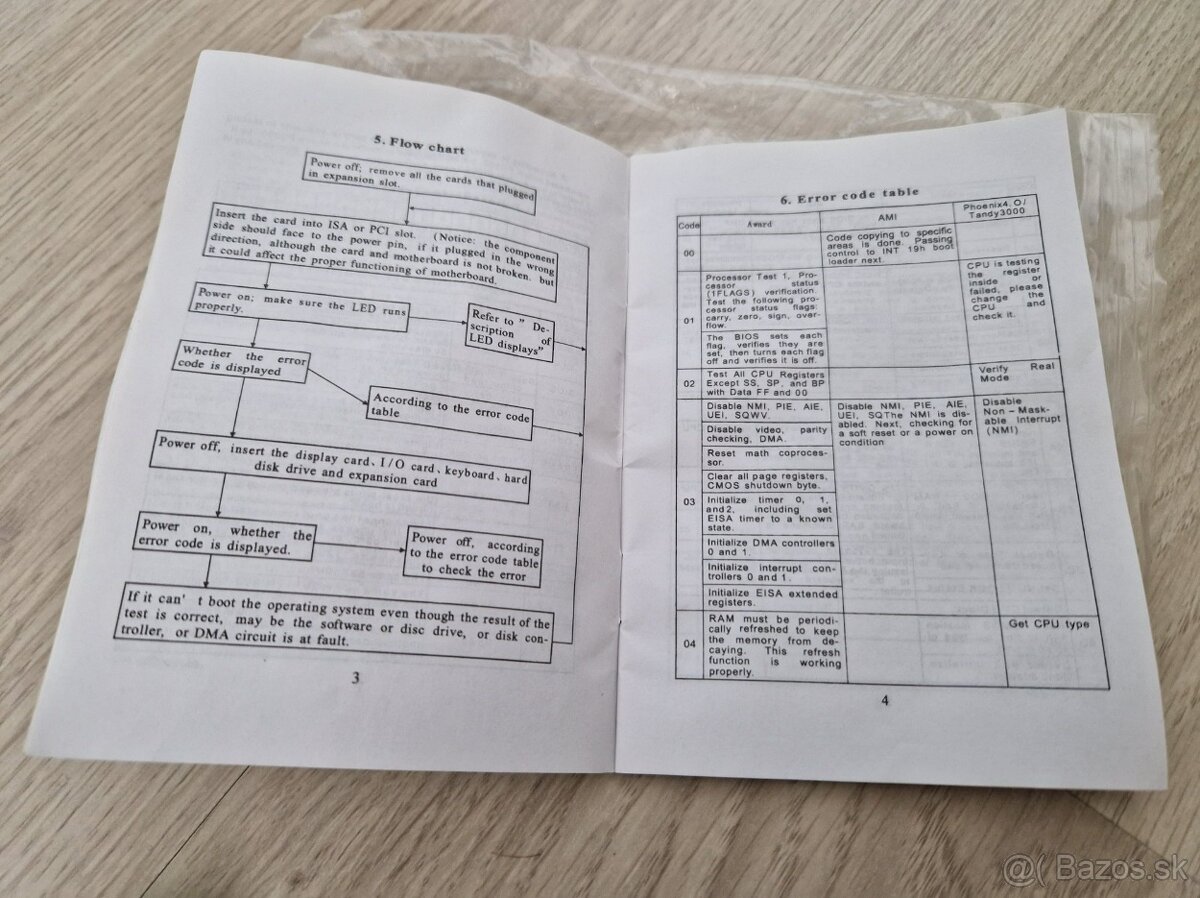 5. Flow chart
Power off; remove all the cards that plugged
in expansion slot.
Insert the card into ISA or PCI slot. (Notice: the component
side should face to the power pin, if it plugged in the wrong
direction, although the card and motherboard is not broken. but
it could affect the proper functioning of motherboard.
Power on; make sure the LED runs
properly.
Refer to " De-
scription of
LED displays"
Whether the error
code is displayed
According to the error code
table
Power off, insert the display card、I/O card、keyboard、hard
disk drive and expansion card
Power on, whether the
error code is displayed.
Power off, according
to the error code table
to check the error
If it can' t boot the operating system even though the result of the
test is correct, may be the software or disc drive, or disk con-
troller, or DMA circuit is at fault.
3
6. Error code table
Code
Award
AMI
Phoenix4.0/
Tandy3000
00
Code copying to specific
areas is done. Passing
control to INT 19h boot
loader next.
01
Processor Test 1, Pro-
cessor status
(1FLAGS) verification.
Test the following pro-
cessor status flags:
carry, zero, sign, over-
flow.
The BIOS sets each
flag, verifies they are
set, then turns each flag
off and verifies it is off.
CPU is testing
the register
inside or
failed, please
change the
CPU and
check it.
02
Test All CPU Registers
Except SS, SP, and BP
with Data FF and 00
Verify Real
Mode
03
Disable NMI, PIE, AIE,
UEI, SQWV.
Disable video, parity
checking, DMA.
Reset math coproces-
sor.
Clear all page registers,
CMOS shutdown byte.
Initialize timer 0, 1,
and2, including set
EISA timer to a known
state.
Initialize DMA controllers
0 and 1.
Initialize interrupt con-
trollers 0 and 1.
Initialize EISA extended
registers.
Disable NMI, PIE, AIE,
UEI, SQThe NMI is dis-
abled. Next, checking for
a soft reset or a power on
condition
Disable
Non-Mask-
able Interrupt
(NMI)
04
RAM must be periodi-
cally refreshed to keep
the memory from de-
caying. This refresh
function is working
properly.
Get CPU type
4
@( Bazos.sk